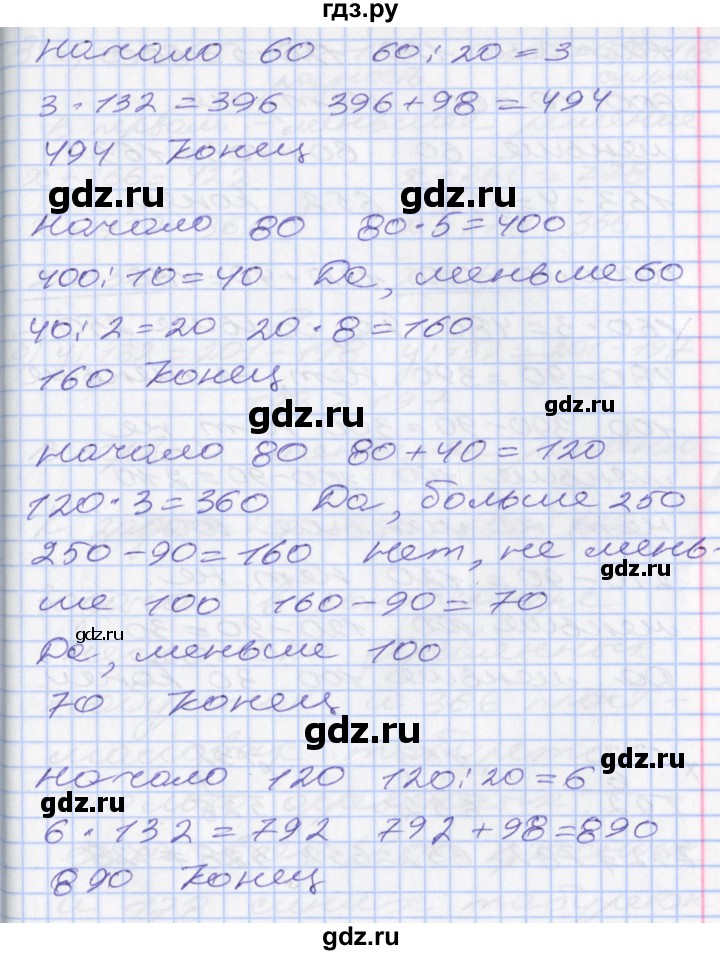 гдз.ру
Начало 60 60:20=3
3·132=396 396+98=494
494 Конец
gdz.ru
gdz.ru
Начало 80 80·5=400
400:10=40 Да, меньше 60
40:2=20 20·8=160
160 Конец
gdz.ru
gdz.ru
Начало 80 80+40=120
120·3=360 Да, больше 250
250-90=160 Нет, не мень-
gdz.ru
ше 100 160-90=70
gdz.ru
Да, меньше 100
70 Конец
gdz.ru
gdz.ru
Начало 120 120:20=6
gdz.ru
6·132=792 792+98=890
890 Конец
gdz.ru